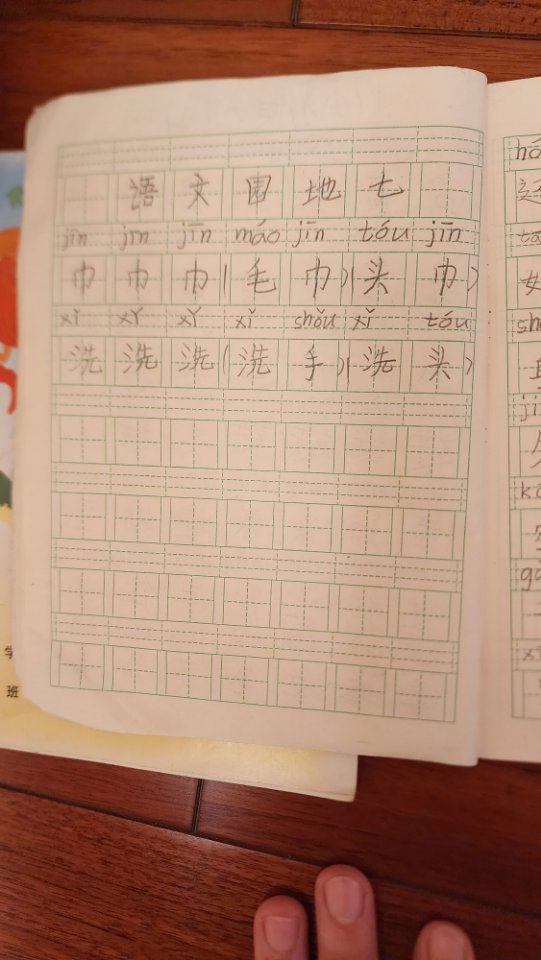 語文园地七
jīn jīn jīn máo jīn tóu jīn
巾 巾 巾 (毛 巾) (头 巾)
xǐ xǐ xǐ xǐ shǒu xǐ tóu
洗 洗 洗 (洗 手) (洗 头)
学
班